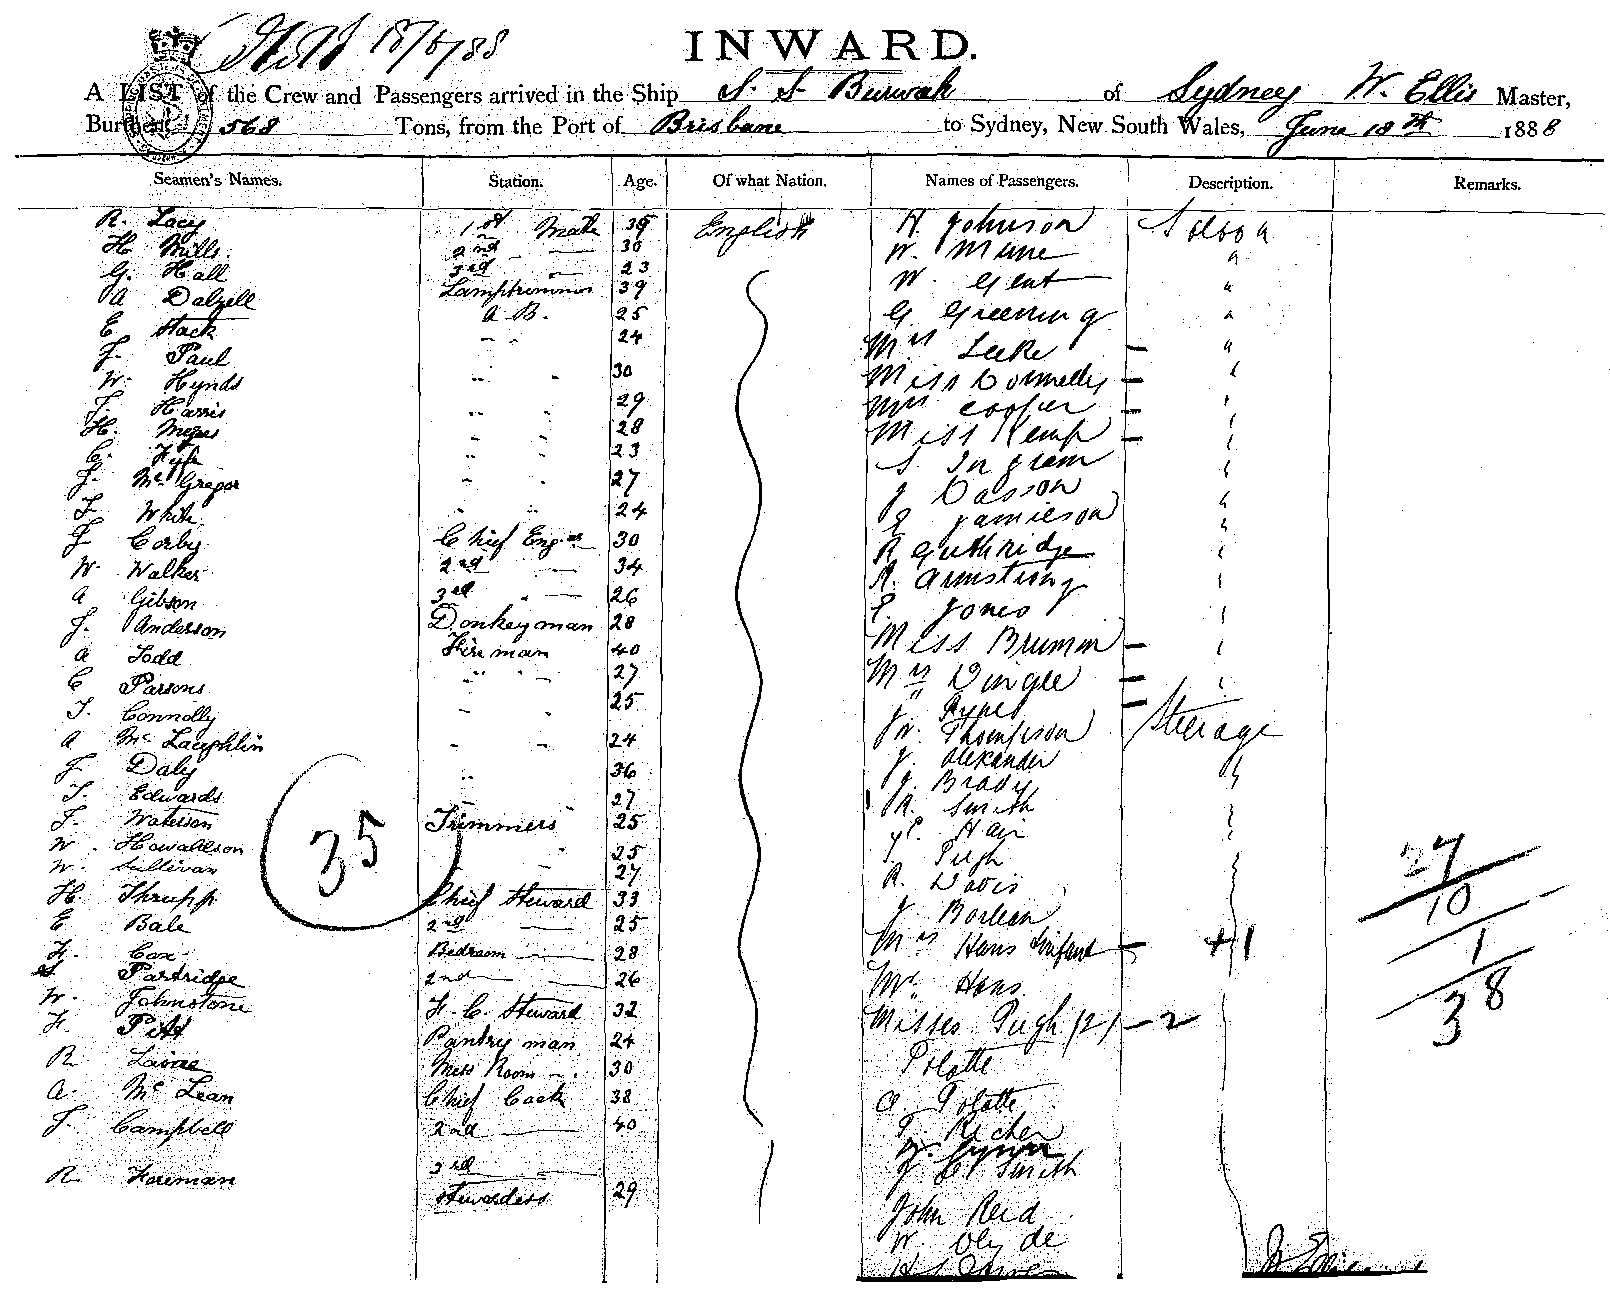 18/6/88
INWARD.
A LIST of the Crew and Passengers arrived in the Ship S. S. Burwah of Sydney W. Ellis Master,
Burthen 568 Tons, from the Port of Brisbane to Sydney, New South Wales, June 18th 1888
Seamen's Names. Station. Age. Of what Nation. Names of Passengers. Description. Remarks.
R. Lacey 1st Mate 39 English H Johnson Saloon
H Mills 2nd — 30 W. Mune "
G. Hall 3rd — 23 W. Gent "
A Dalzell Lamptrimmer 39 G Greening "
E Stack A. B. 25 Mrs Leeke — "
J. Paul " " 24 Miss Donnelly — "
W. Hynds " " 30 Mrs Cooper — "
T. Harris " " 29 Miss Kemp — "
H. Meyers " " 28 S. Ingram "
C. Fyfe " " 23 J Dasson "
J. McGregor " " 27 E Jamieson "
T. White " " 24 R Guthridge "
J Corby Chief Engr 30 A. Armstrong "
W. Walker 2nd — 34 E. Jones "
A Gibson 3rd " — 26 Miss Brumm — "
J. Anderson Donkeyman 28 Mrs Dingle — "
A Todd Fireman 40 "
C Parsons " " 27 W. Thompson Steerage
T. Connolly " " 25 J. Alexander "
A McLaughlin " " 24 J. Brady
J Daly " 36 R. Smith
T. Edwards 27 Hay
J. Waterson Trimmers 25 Pugh
W. Howaldson 25 R. Davis
W. Sullivan 27 J Borlean
H. Thrupp Chief Steward 33 Mrs Hans & infant — +1
E Bale 2nd — 25 Mr. Hans
F. Cox Bedroom — 28 Misses Pugh (2) — 2
Partridge 2nd — 26 Polatte
W. Johnstone F. C. Steward 32 A Polatte
F. Pitt Pantry man 24
R. Mess Room — 30 J C Smith
A. McLean Chief Cook 38 John Reid
J. Campbell 2nd — 40 W.
3rd —
R. Foreman Stewardess 29
35
27
10
1
38